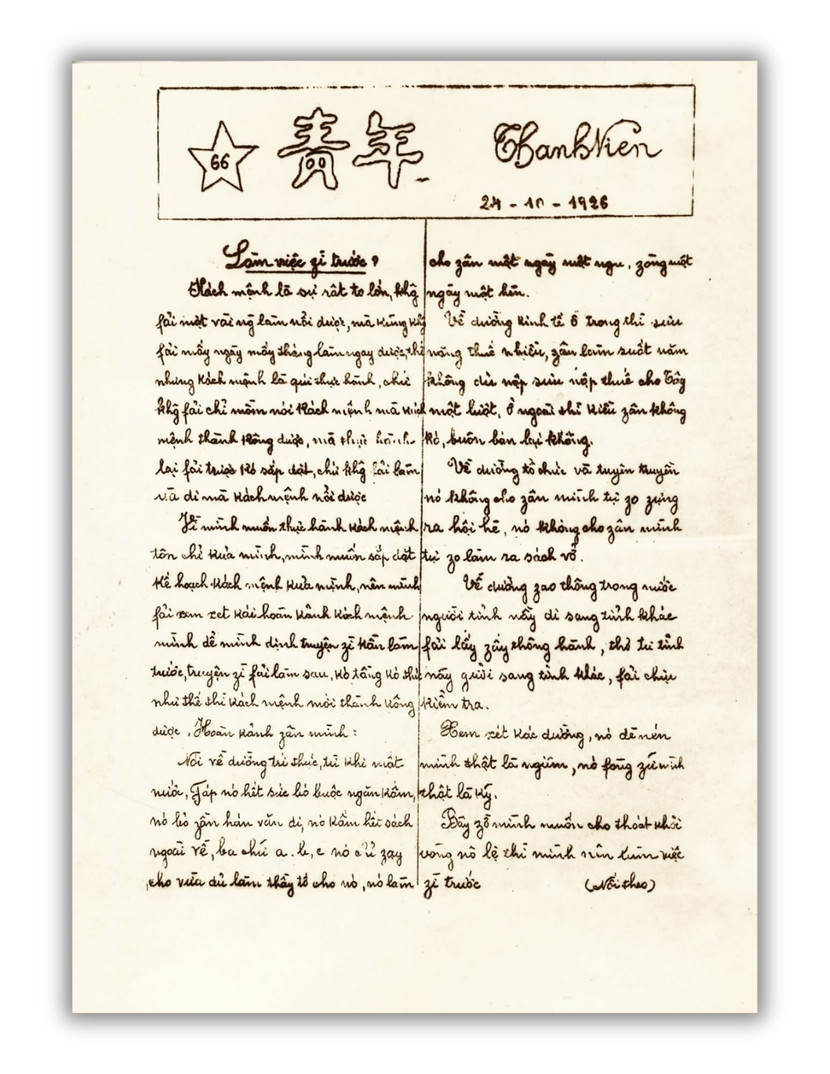 66
青年
Thanh Niên
24 - 10 - 1926
Làm việc zì trước?
Kách mệnh là sự rất to lớn, khg̃
fải một vài ng̃ làm nổi được, mà kũng khg̃
fải mấy ngày mấy tháng làm ngay được, thế
nhưng kách mệnh là quí thực hành, chứ
khg̃ fải chỉ mồm nói kách mệnh mà kách
mệnh thành kông được, mà thực hành
lại fải trước kó sắp đặt, chứ khg̃ fải làm
và đi mà kách mệnh nổi được
Vì mình muốn thực hành kách mệnh
tôn chỉ kủa mình, mình muốn sắp đặt
kế hoạch kách mệnh kủa mình, nên mình
fải xem xét kái hoàn kảnh kách mệnh
mình để mình định truyện zì kần làm
trước, truyện zì fải làm sau, kó tầng kó thứ
như thế thì kách mệnh mới thành kông
được. Hoàn kảnh zân mình:
Nói về đường trí thức, từ khi mất
nước, Fáp nó hết sức bó buộc ngăn kấm,
nó bỏ zân hán văn đi, nó kấm hết sách
ngoài về, ba chữ a. b, c nó chỉ zạy
cho vừa đủ làm thầy tớ cho nó, nó làm
cho zân một ngày một ngu, zòng một
ngày một hèn.
Về đường kinh tế ở trong thì sưu
nặng thuế nhiều, zân làm suốt năm
không đủ nộp sưu nộp thuế cho Tây
một lượt, ở ngoài thì kiều zân không
kó, buôn bán lại không.
Về đường tổ chức và tuyên truyền
nó không cho zân mình tự zo zựng
ra hội hè, nó không cho zân mình
tự zo làm ra sách vở.
Về đường zao thông trong nước
người tỉnh nầy đi sang tỉnh khác
fải lấy zấy thông hành, thơ từ tỉnh
nầy gửi sang tỉnh khác, fải chịu
kiểm tra.
Xem xét kác đường, nó đè nén
mình thật là ngiêm, nó fòng zữ mình
thật là kỹ.
Bây zờ mình muốn cho thoát khỏi
vòng nô lệ thì mình nên làm việc
zì trước
(Nối theo)